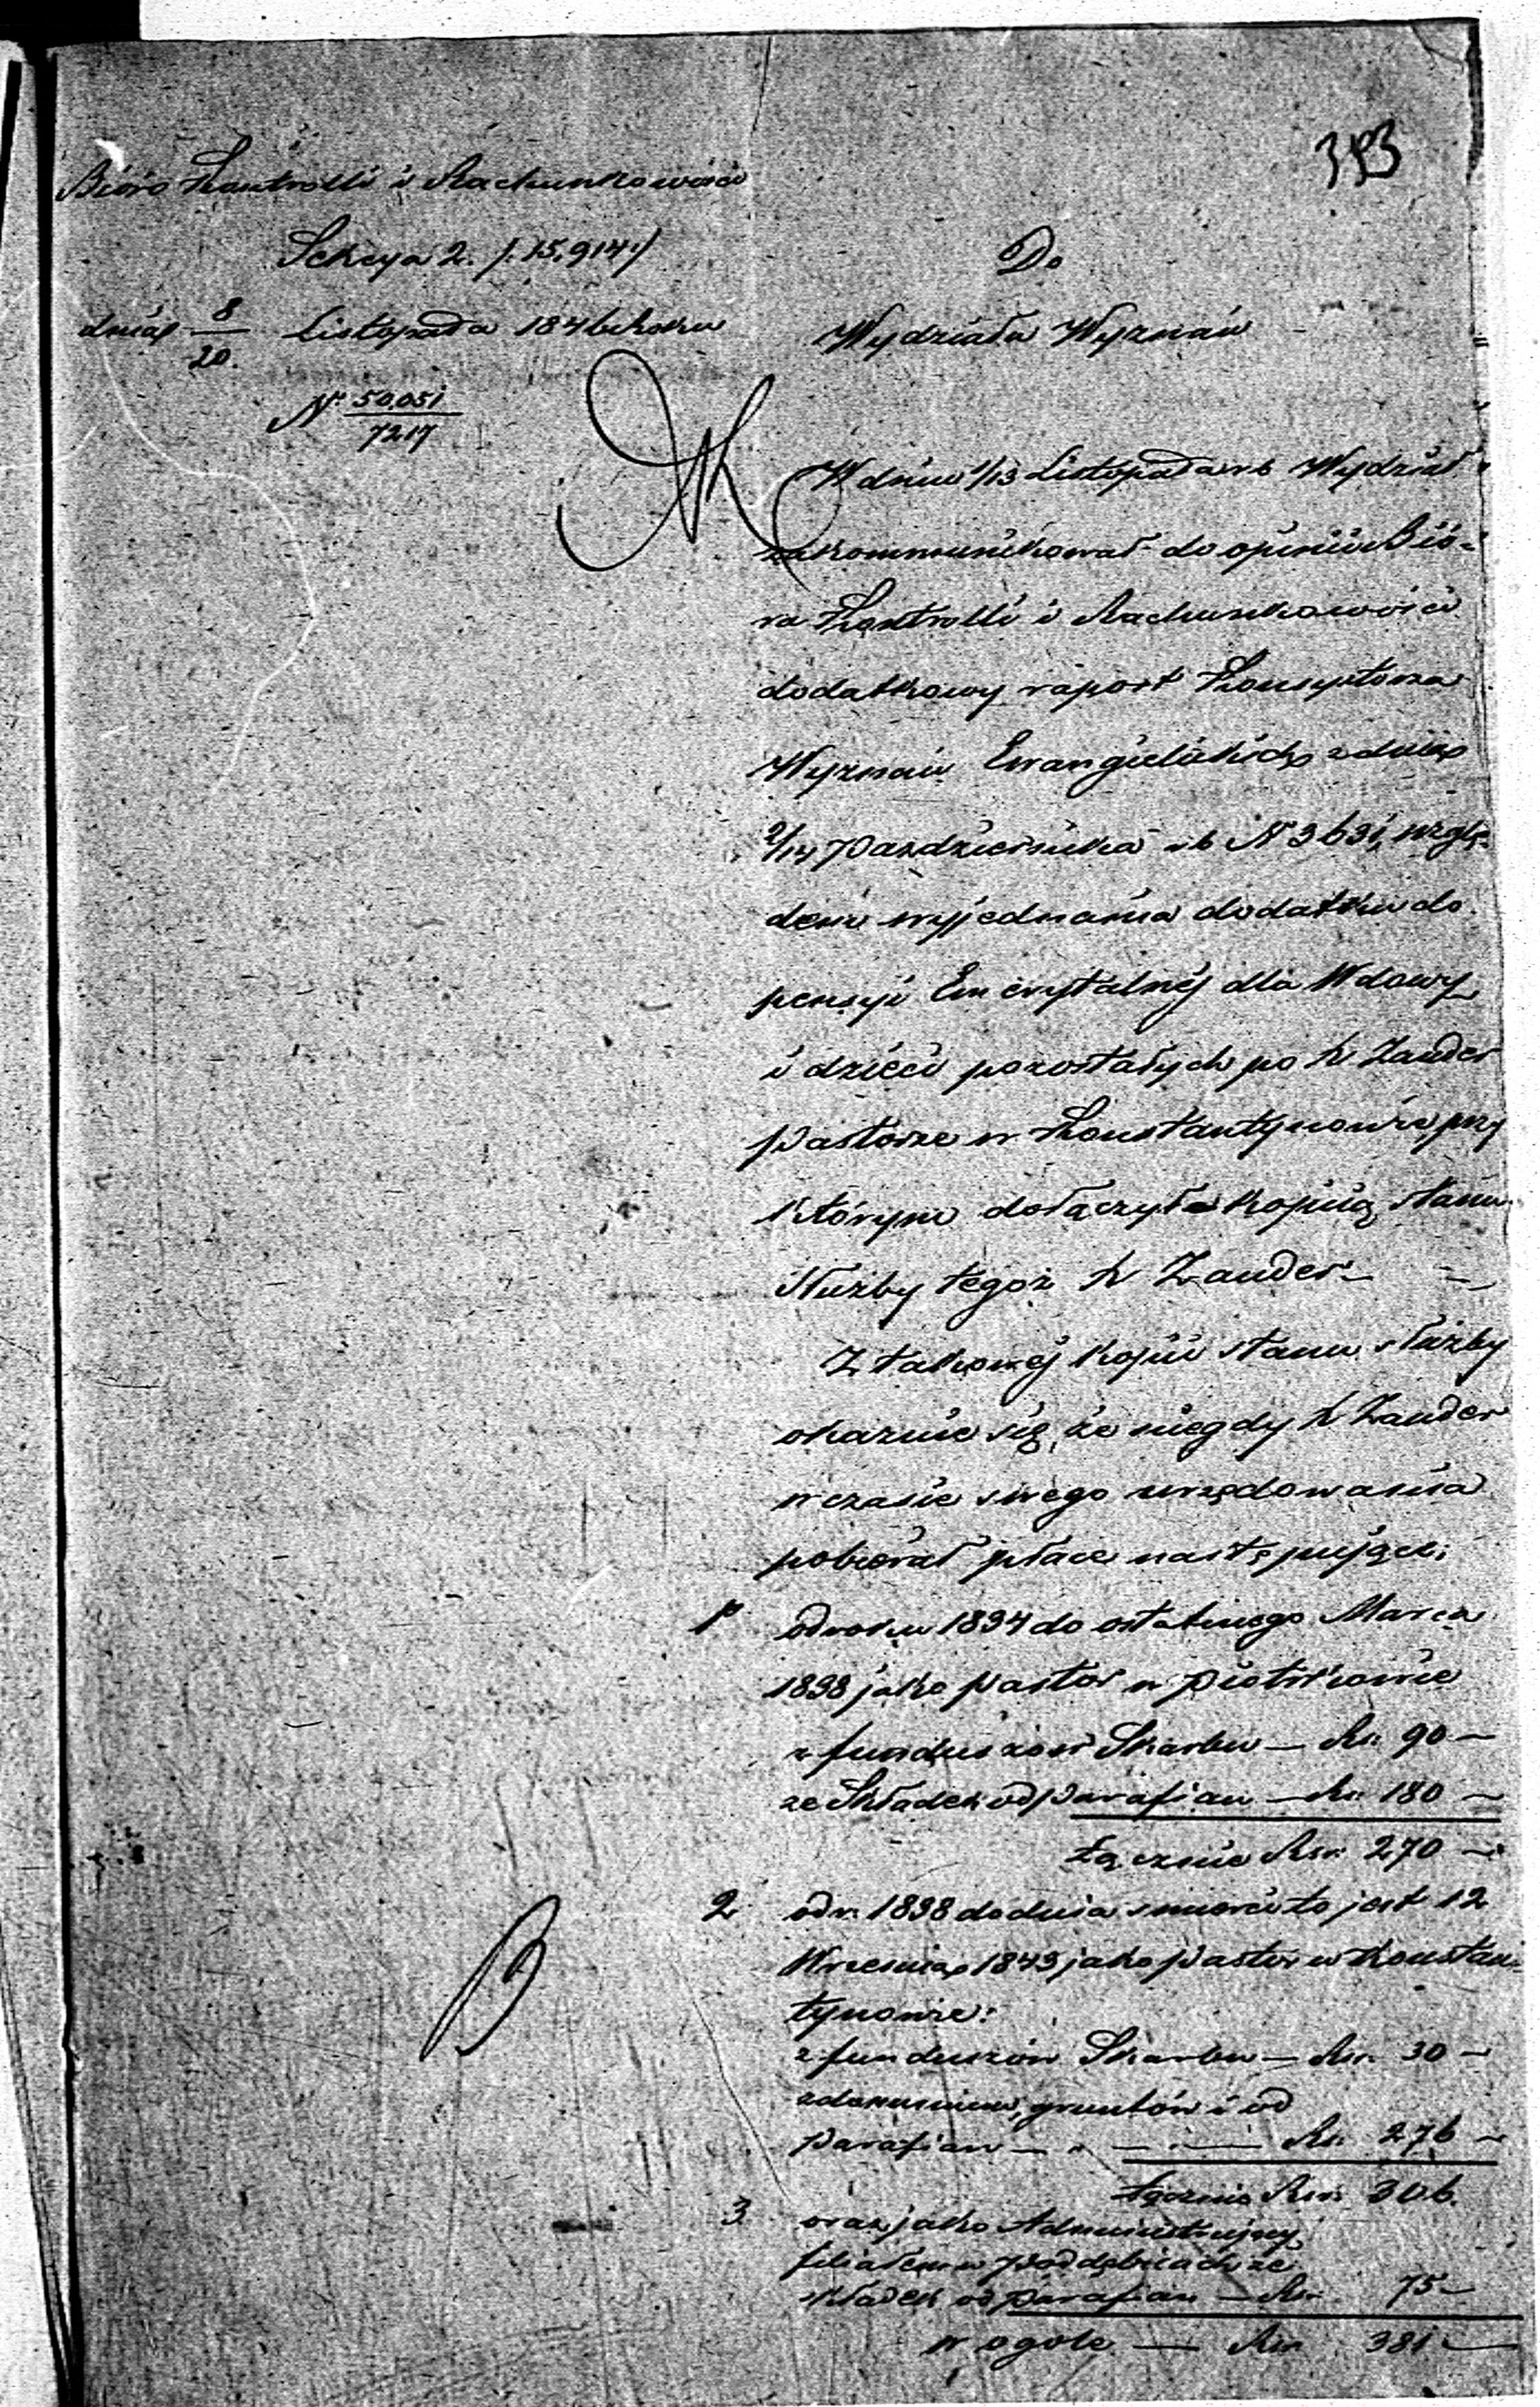 393
Bióro Kontrolli i Rachunkowości
Sekcya 2. /: 15,914 :/
dnia 8/20. Listopada 1846 roku
Nr 50,051/7217
Do
Wydziału Wyznań
W dniu 1/13 Listopada r b Wydział
zakommunikował do opinii Bió-
ra Kontrolli i Rachunkowości
dodatkowy raport Konsystorza
Wyznań Ewangielickich z dnia
2/14 Października r b N 3631, wzglę-
dem wyjednania dodatku do
pensyi Emerytalnéj dla Wdowy
i dzieci pozostałych po X Zander
Pastorze w Konstantynowie, przy
którym dołączył kopiią stanu
służby tegoż X Zander.
Z takowéj kopii stanu służby
okazuie się, że niegdy X Zander
w czasie swego urzędowania
pobierał płace następujące:
1 od roku 1834 do ostatniego Marca
1838 jako Pastor w Piotrkowie
z funduszów Skarbu — Rsr. 90 —
ze Składek od Parafian — Rsr. 180 —
Łącznie Rsr. 270 —
2 od r. 1838 do dnia śmierci to jest 12
Września 1843 jako Pastor w Konstan-
tynowie:
z funduszów Skarbu — Rsr. 30 —
gruntów i od
Parafian — " — Rsr. 276 —
Łącznie Rsr. 306.
3. oraz jako Administrujący
filiałem w Poddębicach ze
składek od Parafian — Rsr. 75 —
w ogóle — Rsr. 381 —